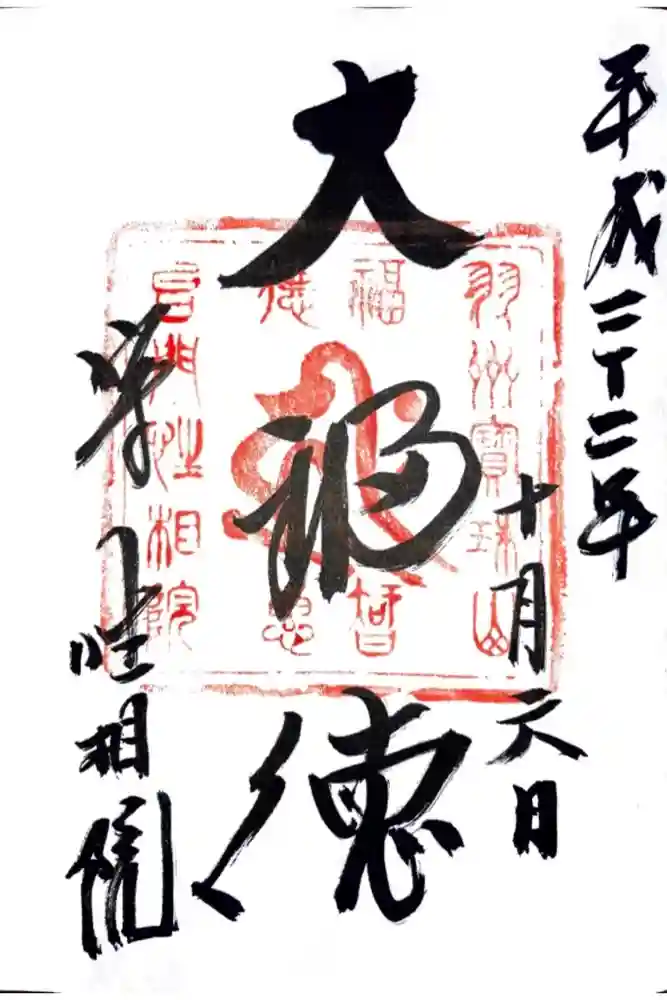 平成二十二年
十月六日
大福徳
性相院
羽州寶珠山
福智
徳恵
性相院